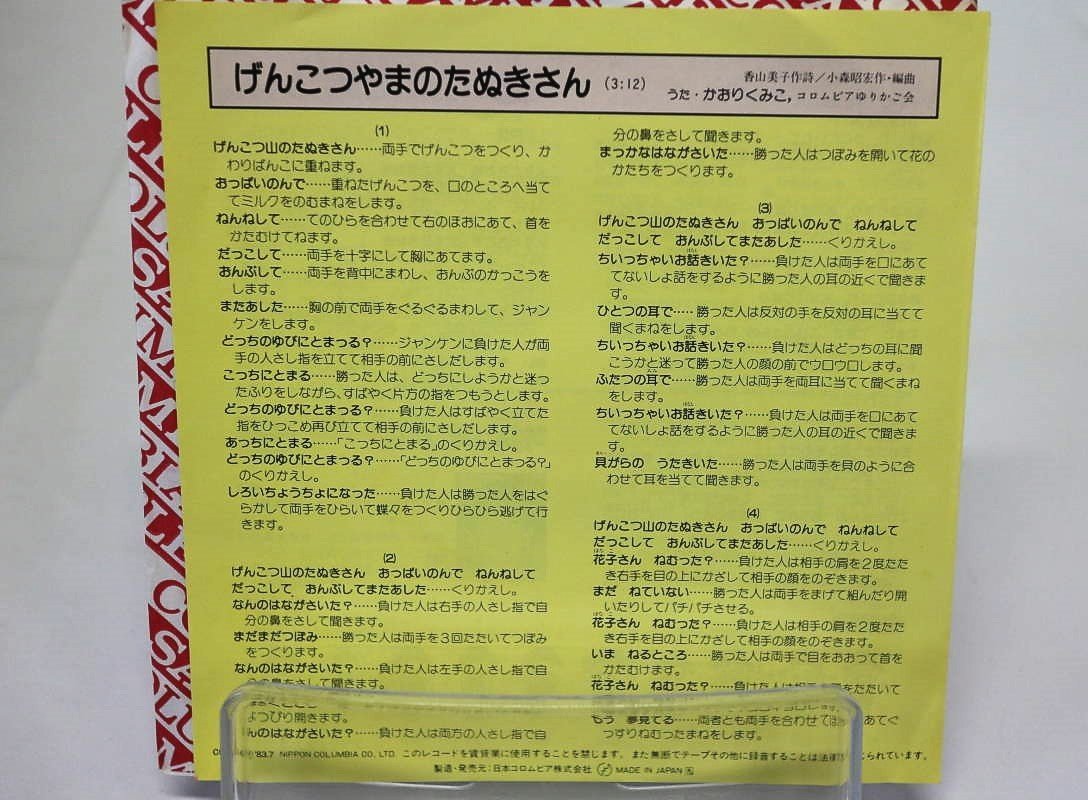 げんこつやまのたぬきさん (3:12)
香山美子作詩／小森昭宏作・編曲
うた・かおりくみこ, コロムビアゆりかご会
(1)
げんこつ山のたぬきさん……両手でげんこつをつくり、か
わりばんこに重ねます。
おっぱいのんで……重ねたげんこつを、口のところへ当て
てミルクをのむまねをします。
ねんねして……てのひらを合わせて右のほおにあて、首を
かたむけてねます。
だっこして……両手を十字にして胸にあてます。
おんぶして……両手を背中にまわし、おんぶのかっこうを
します。
またあした……胸の前で両手をぐるぐるまわして、ジャン
ケンをします。
どっちのゆびにとまっる？……ジャンケンに負けた人が両
手の人さし指を立てて相手の前にさしだします。
こっちにとまる……勝った人は、どっちにしようかと迷っ
たふりをしながら、すばやく片方の指をつもうとします。
どっちのゆびにとまっる？……負けた人はすばやく立てた
指をひっこめ再び立てて相手の前にさしだします。
あっちにとまる……「こっちにとまる」のくりかえし。
どっちのゆびにとまっる？……「どっちのゆびにとまっる？」
のくりかえし。
しろいちょうちょになった……負けた人は勝った人をはぐ
らかして両手をひらいて蝶々をつくりひらひら逃げて行
きます。
(2)
げんこつ山のたぬきさん　おっぱいのんで　ねんねして
だっこして　おんぶしてまたあした……くりかえし。
なんのはながさいた？……負けた人は右手の人さし指で自
分の鼻をさして聞きます。
まだまだつぼみ……勝った人は両手を3回たたいてつぼみ
をつくります。
なんのはながさいた？……負けた人は左手の人さし指で自
分の鼻をさして聞きます。
ょっぴり開きます。
んのはながさいた？……負けた人は両方の人さし指で自
分の鼻をさして聞きます。
まっかなはながさいた……勝った人はつぼみを開いて花の
かたちをつくります。
(3)
げんこつ山のたぬきさん　おっぱいのんで　ねんねして
だっこして　おんぶしてまたあした……くりかえし。
ちいっちゃいお話きいた？……負けた人は両手を口にあて
てないしょ話をするように勝った人の耳の近くで聞きま
す。
ひとつの耳で……勝った人は反対の手を反対の耳に当てて
聞くまねをします。
ちいっちゃいお話きいた？……負けた人はどっちの耳に聞
こうかと迷って勝った人の顔の前でウロウロします。
ふたつの耳で……勝った人は両手を両耳に当てて聞くまね
をします。
ちいっちゃいお話きいた？……負けた人は両手を口にあて
てないしょ話をするように勝った人の耳の近くで聞きま
す。
貝がらの　うたきいた……勝った人は両手を貝のように合
わせて耳を当てて聞きます。
(4)
げんこつ山のたぬきさん　おっぱいのんで　ねんねして
だっこして　おんぶしてまたあした……くりかえし。
花子さん　ねむった？……負けた人は相手の肩を2度たた
き右手を目の上にかざして相手の顔をのぞきます。
まだ　ねていない……勝った人は両手をまげて組んだり開
いたりしてパチパチさせる。
花子さん　ねむった？……負けた人は相手の肩を2度たた
き右手を目の上にかざして相手の顔をのぞきます。
いま　ねるところ……勝った人は両手で目をおおって首を
かたむけます。
花子さん　ねむった？……負けた人は相手の肩をたたいて
もう　夢見てる……両者とも両手を合わせてほおにあてぐ
っすりねむったまねをします。
'83.7 NIPPON COLUMBIA CO., LTD. このレコードを賃貸業に使用することを禁じます。また無断でテープその他に録音することは法律で禁じられています。
製造・発売元：日本コロムビア株式会社 MADE IN JAPAN